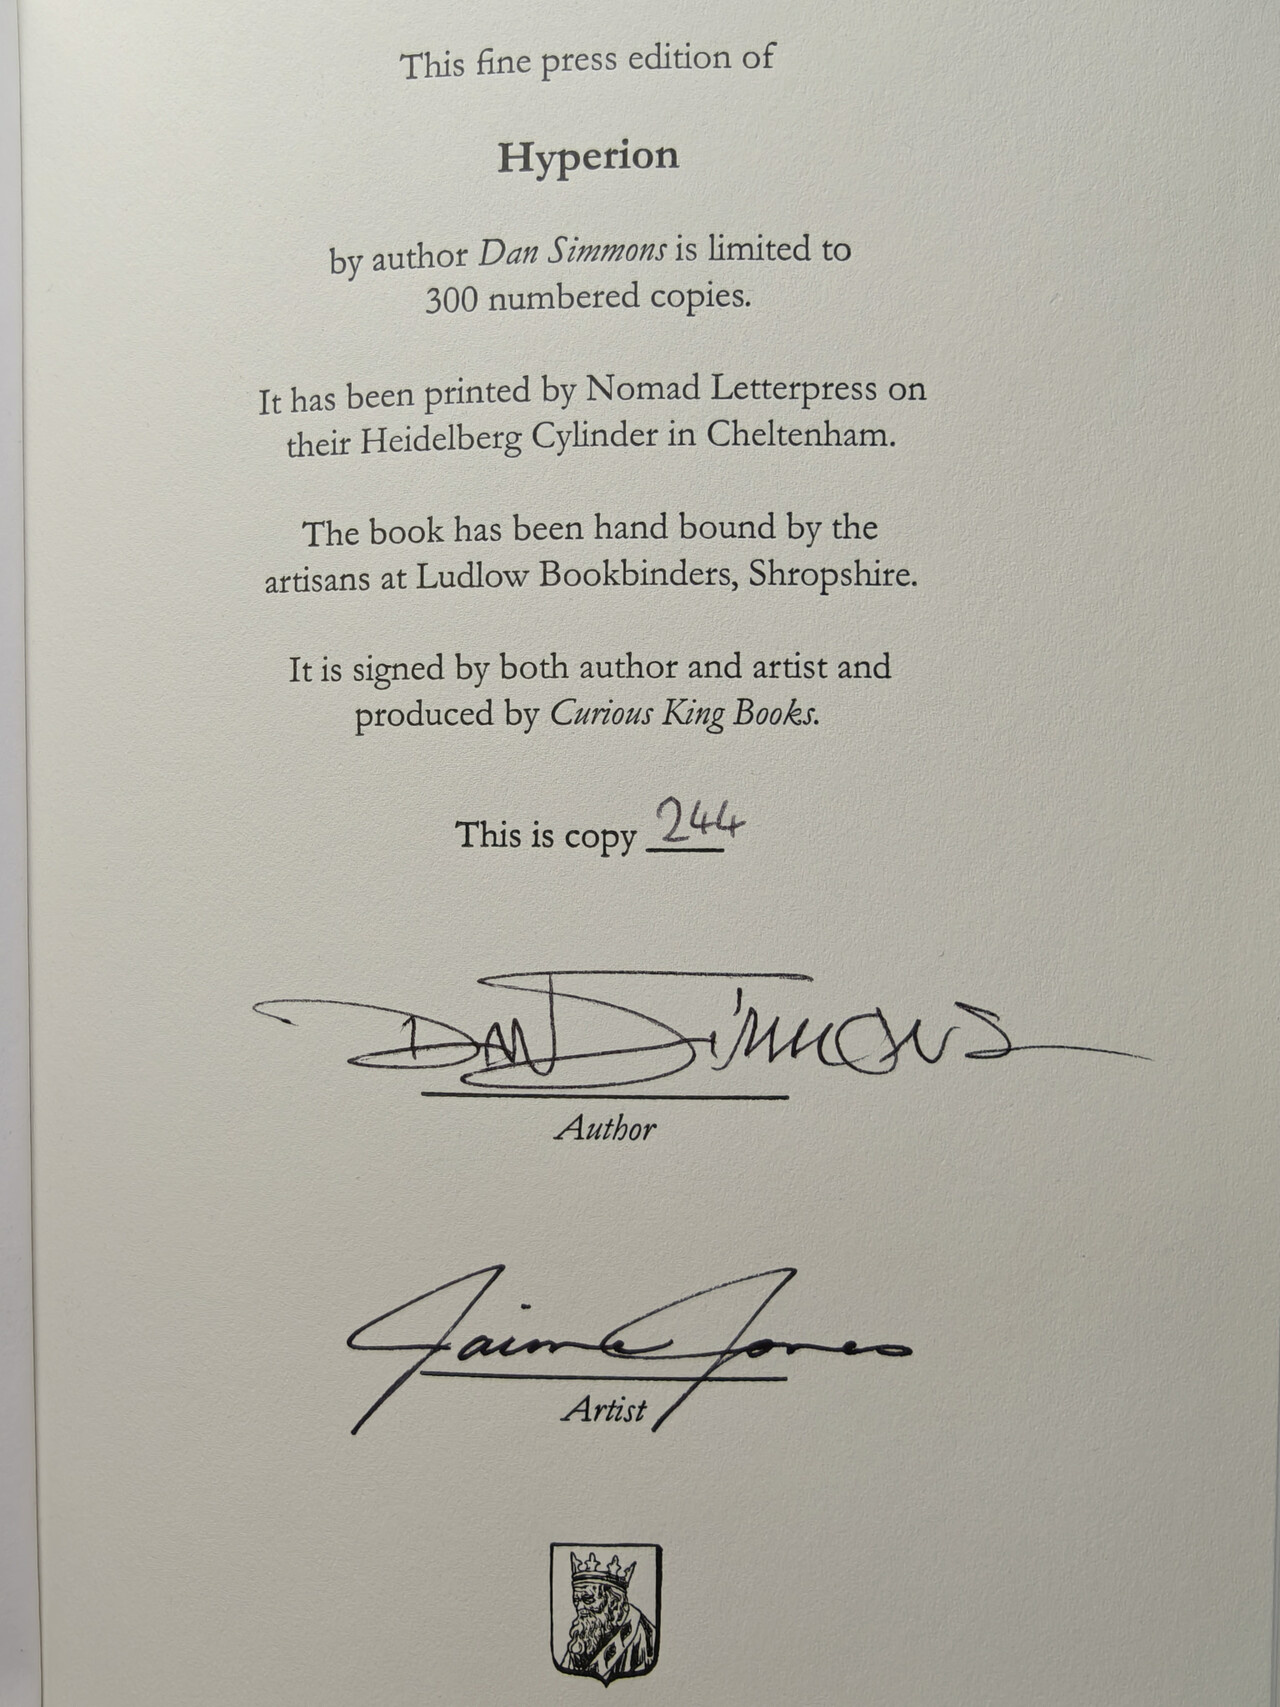 This fine press edition of
Hyperion
by author Dan Simmons is limited to
300 numbered copies.
It has been printed by Nomad Letterpress on
their Heidelberg Cylinder in Cheltenham.
The book has been hand bound by the
artisans at Ludlow Bookbinders, Shropshire.
It is signed by both author and artist and
produced by Curious King Books.
This is copy 244
Dan Simmons
Author
Jaime Jones
Artist